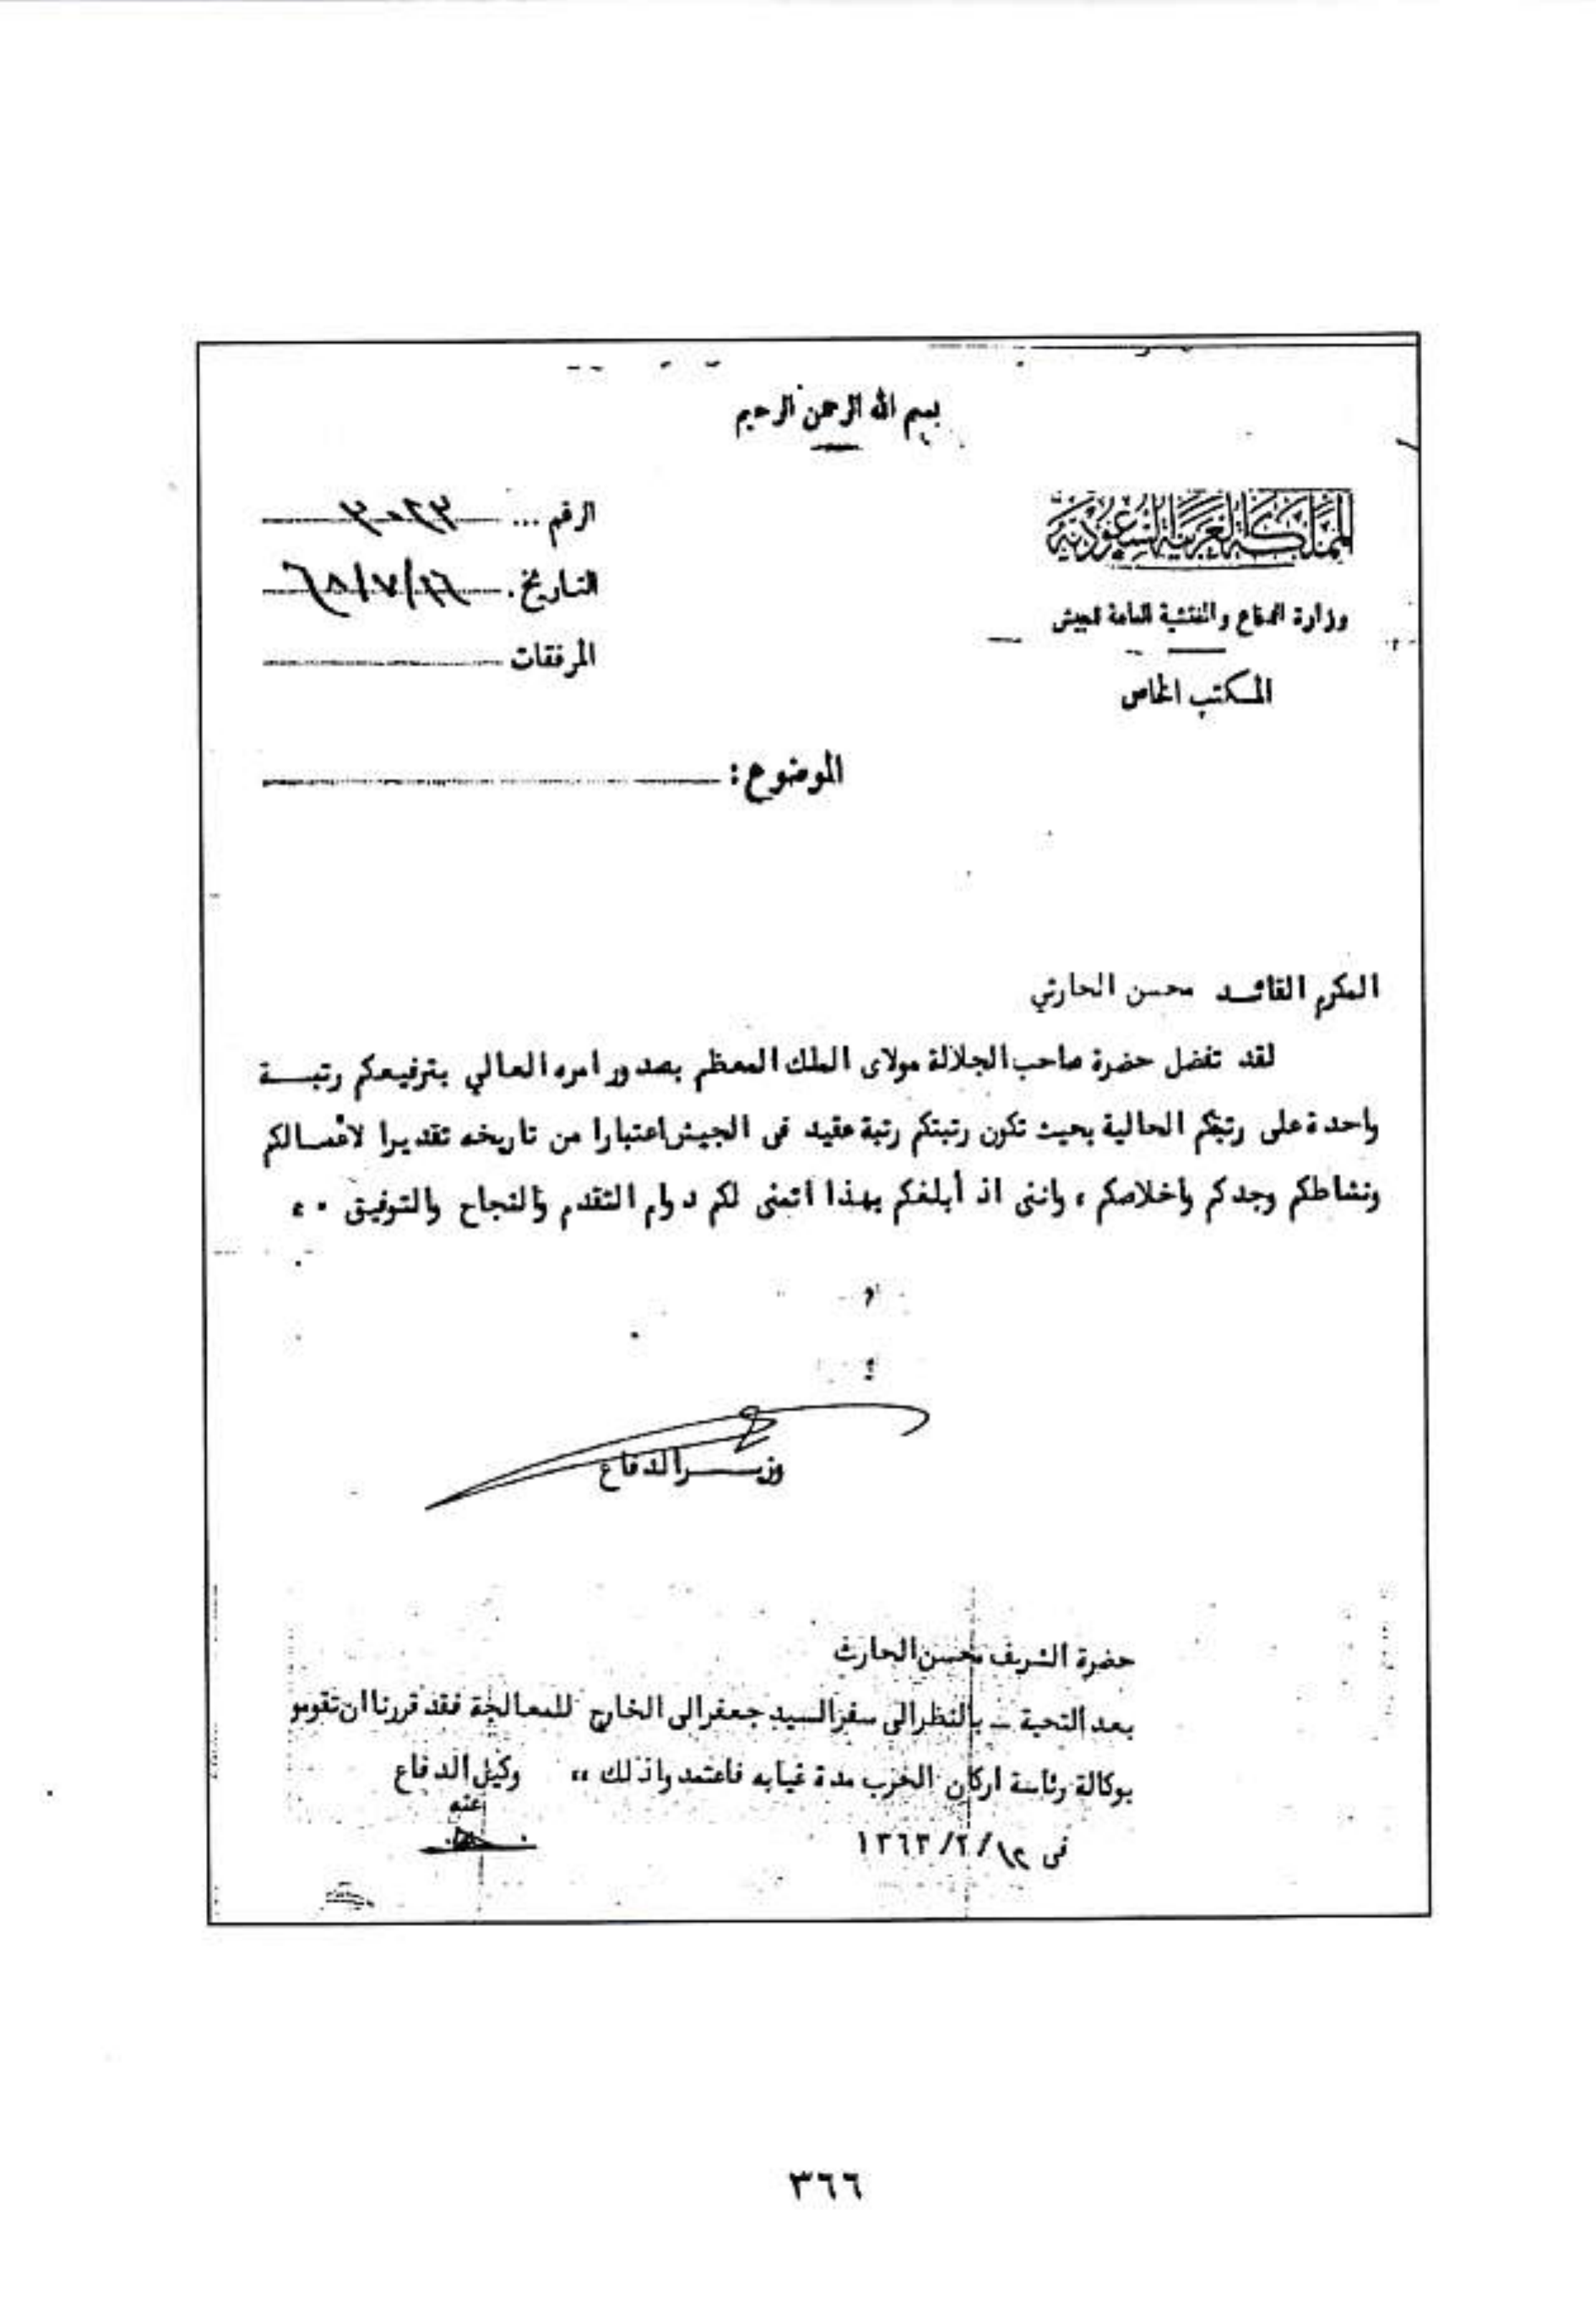 بسم الله الرحمن الرحيم
المملكة العربية السعودية
وزارة الدفاع والمفتشية العامة للجيش
المكتب الخاص
الرقم ...
التاريخ. ١٦/٧/٦٨
المرفقات
الموضوع:
المكرم القائد محسن الحارثي
لقد تفضل حضرة صاحب الجلالة مولاى الملك المعظم بصدور امره العالي بترفيعكم رتبة
واحدة على رتبتكم الحالية بحيث تكون رتبتكم رتبة عقيد فى الجيش اعتبارا من تاريخه تقديرا لاعمالكم
ونشاطكم وجدكم واخلاصكم ، واننى اذ أبلغكم بهذا اتمنى لكم دوام التقدم والنجاح والتوفيق ..
وزير الدفاع
حضرة الشريف محسن الحارث
بعد التحية – بالنظر الى سفر السيد جعفر الى الخارج للمعالجة فقد قررنا ان تقومو
بوكالة رئاسة اركان الحرب مدة غيابه فاعتمدوا ذلك ،، وكيل الدفاع
عنه
فى ١٢/٢/١٣٦٣
٣٦٦